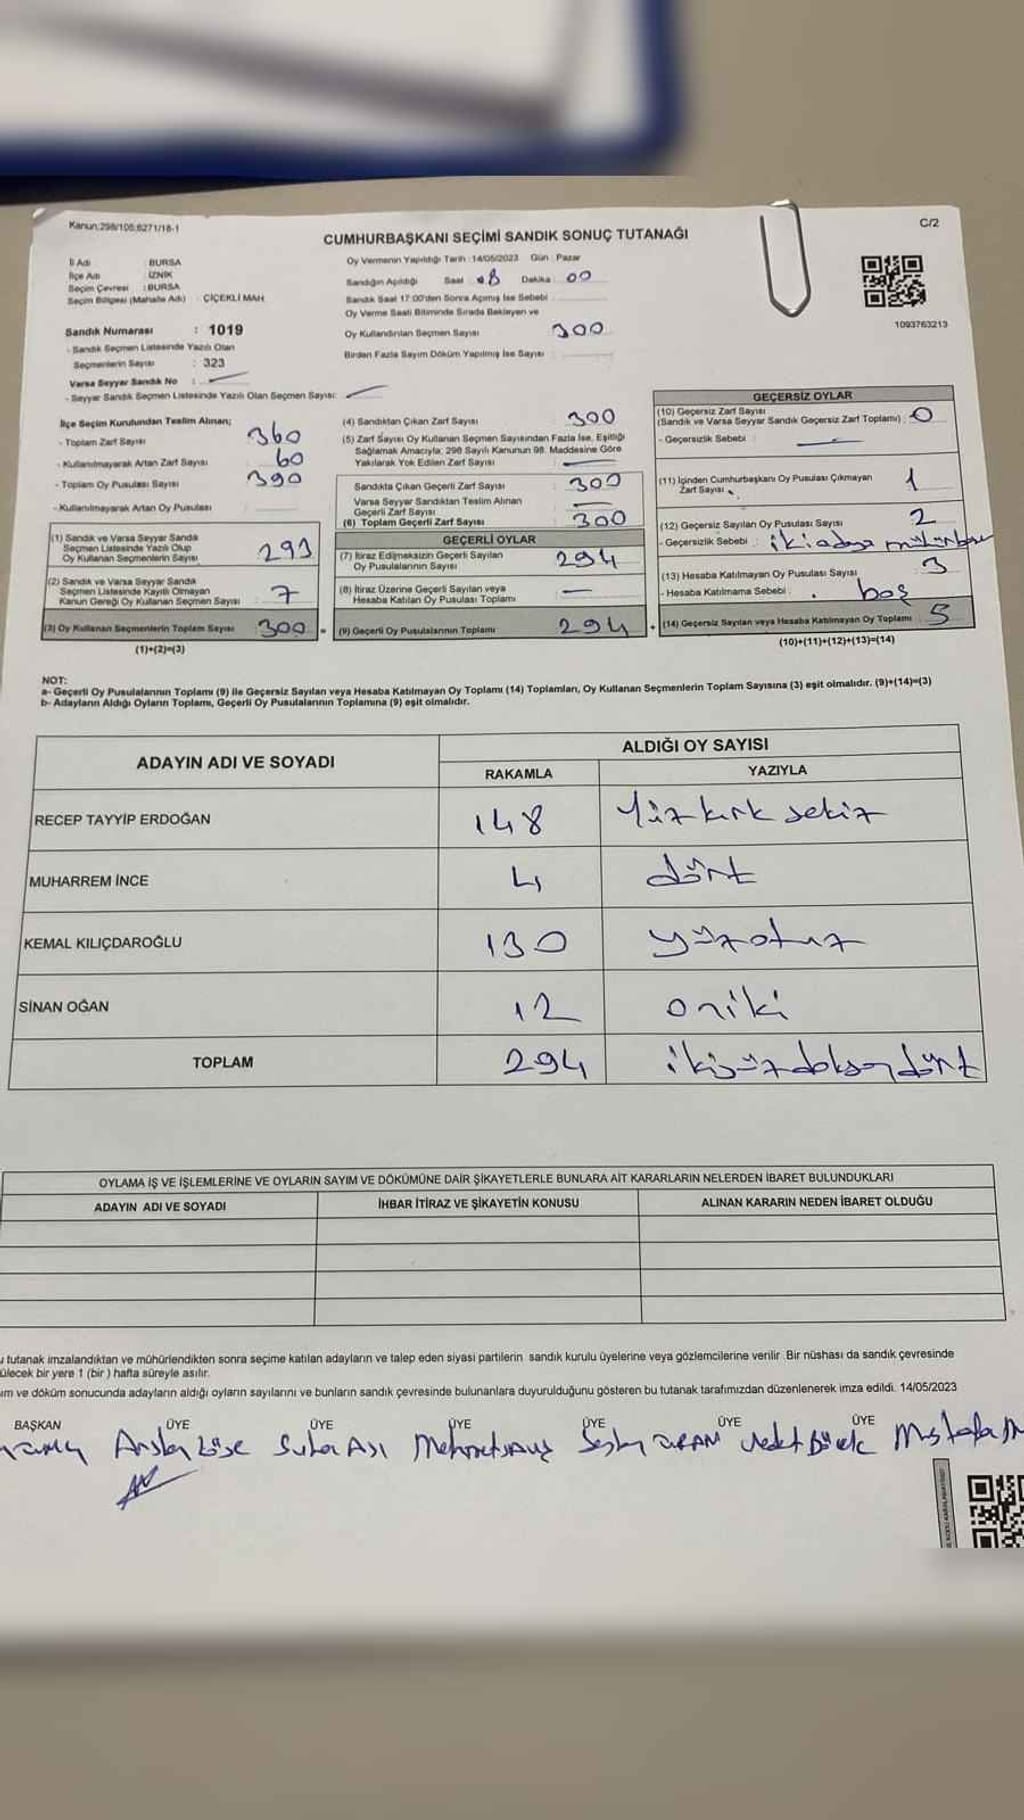 Kanun:298/105;6271/18-1
C/2
CUMHURBAŞKANI SEÇİMİ SANDIK SONUÇ TUTANAĞI
İl Adı : BURSA
İlçe Adı : İZNİK
Seçim Çevresi : BURSA
Seçim Bölgesi (Mahalle Adı) : ÇİÇEKLİ MAH
Sandık Numarası : 1019
- Sandık Seçmen Listesinde Yazılı Olan
Seçmenlerin Sayısı : 323
Varsa Seyyar Sandık No :
- Seyyar Sandık Seçmen Listesinde Yazılı Olan Seçmen Sayısı:
Oy Vermenin Yapıldığı Tarih :14/05/2023 Gün : Pazar
Sandığın Açıldığı Saat : 08 Dakika : 00
Sandık Saat 17:00'den Sonra Açımış İse Sebebi
Oy Verme Saati Bitiminde Sırada Bekleyen ve
Oy Kullandırılan Seçmen Sayısı 300
Birden Fazla Sayım Döküm Yapılmış İse Sayısı
1093763213
İlçe Seçim Kurulundan Teslim Alınan;
- Toplam Zarf Sayısı 360
- Kullanılmayarak Artan Zarf Sayısı 60
- Toplam Oy Pusulası Sayısı 390
- Kullanılmayarak Artan Oy Pusulası
(1) Sandık ve Varsa Seyyar Sandık
Seçmen Listesinde Yazılı Olup
Oy Kullanan Seçmenlerin Sayısı 293
(2) Sandık ve Varsa Seyyar Sandık
Seçmen Listesinde Kayıtlı Olmayan
Kanun Gereği Oy Kullanan Seçmen Sayısı 7
(3) Oy Kullanan Seçmenlerin Toplam Sayısı 300
(1)+(2)=(3)
(4) Sandıktan Çıkan Zarf Sayısı 300
(5) Zarf Sayısı Oy Kullanan Seçmen Sayısından Fazla İse, Eşitliği
Sağlamak Amacıyla; 298 Sayılı Kanunun 98. Maddesine Göre
Yakılarak Yok Edilen Zarf Sayısı
Sandıkta Çıkan Geçerli Zarf Sayısı 300
Varsa Seyyar Sandıktan Teslim Alınan
Geçerli Zarf Sayısı
(6) Toplam Geçerli Zarf Sayısı 300
GEÇERLİ OYLAR
(7) İtiraz Edilmeksizin Geçerli Sayılan
Oy Pusulalarının Sayısı 294
(8) İtiraz Üzerine Geçerli Sayılan veya
Hesaba Katılan Oy Pusulası Toplamı —
(9) Geçerli Oy Pusulalarının Toplamı 294
GEÇERSİZ OYLAR
(10) Geçersiz Zarf Sayısı
(Sandık ve Varsa Seyyar Sandık Geçersiz Zarf Toplamı) : 0
- Geçersizlik Sebebi :
(11) İçinden Cumhurbaşkanı Oy Pusulası Çıkmayan
Zarf Sayısı 1
(12) Geçersiz Sayılan Oy Pusulası Sayısı 2
- Geçersizlik Sebebi : iki adaya
(13) Hesaba Katılmayan Oy Pusulası Sayısı 3
- Hesaba Katılmama Sebebi : boş
(14) Geçersiz Sayılan veya Hesaba Katılmayan Oy Toplamı 5
(10)+(11)+(12)+(13)=(14)
NOT:
a- Geçerli Oy Pusulalarının Toplamı (9) ile Geçersiz Sayılan veya Hesaba Katılmayan Oy Toplamı (14) Toplamları, Oy Kullanan Seçmenlerin Toplam Sayısına (3) eşit olmalıdır. (9)+(14)=(3)
b- Adayların Aldığı Oyların Toplamı, Geçerli Oy Pusulalarının Toplamına (9) eşit olmalıdır.
ADAYIN ADI VE SOYADI
ALDIĞI OY SAYISI
RAKAMLA YAZIYLA
RECEP TAYYİP ERDOĞAN 148 Yüz kırk sekiz
MUHARREM İNCE 4 dört
KEMAL KILIÇDAROĞLU 130 yüzotuz
SİNAN OĞAN 12 oniki
TOPLAM 294 ikiyüzdoksandört
OYLAMA İŞ VE İŞLEMLERİNE VE OYLARIN SAYIM VE DÖKÜMÜNE DAİR ŞİKAYETLERLE BUNLARA AİT KARARLARIN NELERDEN İBARET BULUNDUKLARI
ADAYIN ADI VE SOYADI İHBAR İTİRAZ VE ŞİKAYETİN KONUSU ALINAN KARARIN NEDEN İBARET OLDUĞU
tutanak imzalandıktan ve mühürlendikten sonra seçime katılan adayların ve talep eden siyasi partilerin sandık kurulu üyelerine veya gözlemcilerine verilir. Bir nüshası da sandık çevresinde
ülecek bir yere 1 (bir ) hafta süreyle asılır.
ım ve döküm sonucunda adayların aldığı oyların sayılarını ve bunların sandık çevresinde bulunanlara duyurulduğunu gösteren bu tutanak tarafımızdan düzenlenerek imza edildi. 14/05/2023
BAŞKAN ÜYE ÜYE ÜYE ÜYE ÜYE ÜYE